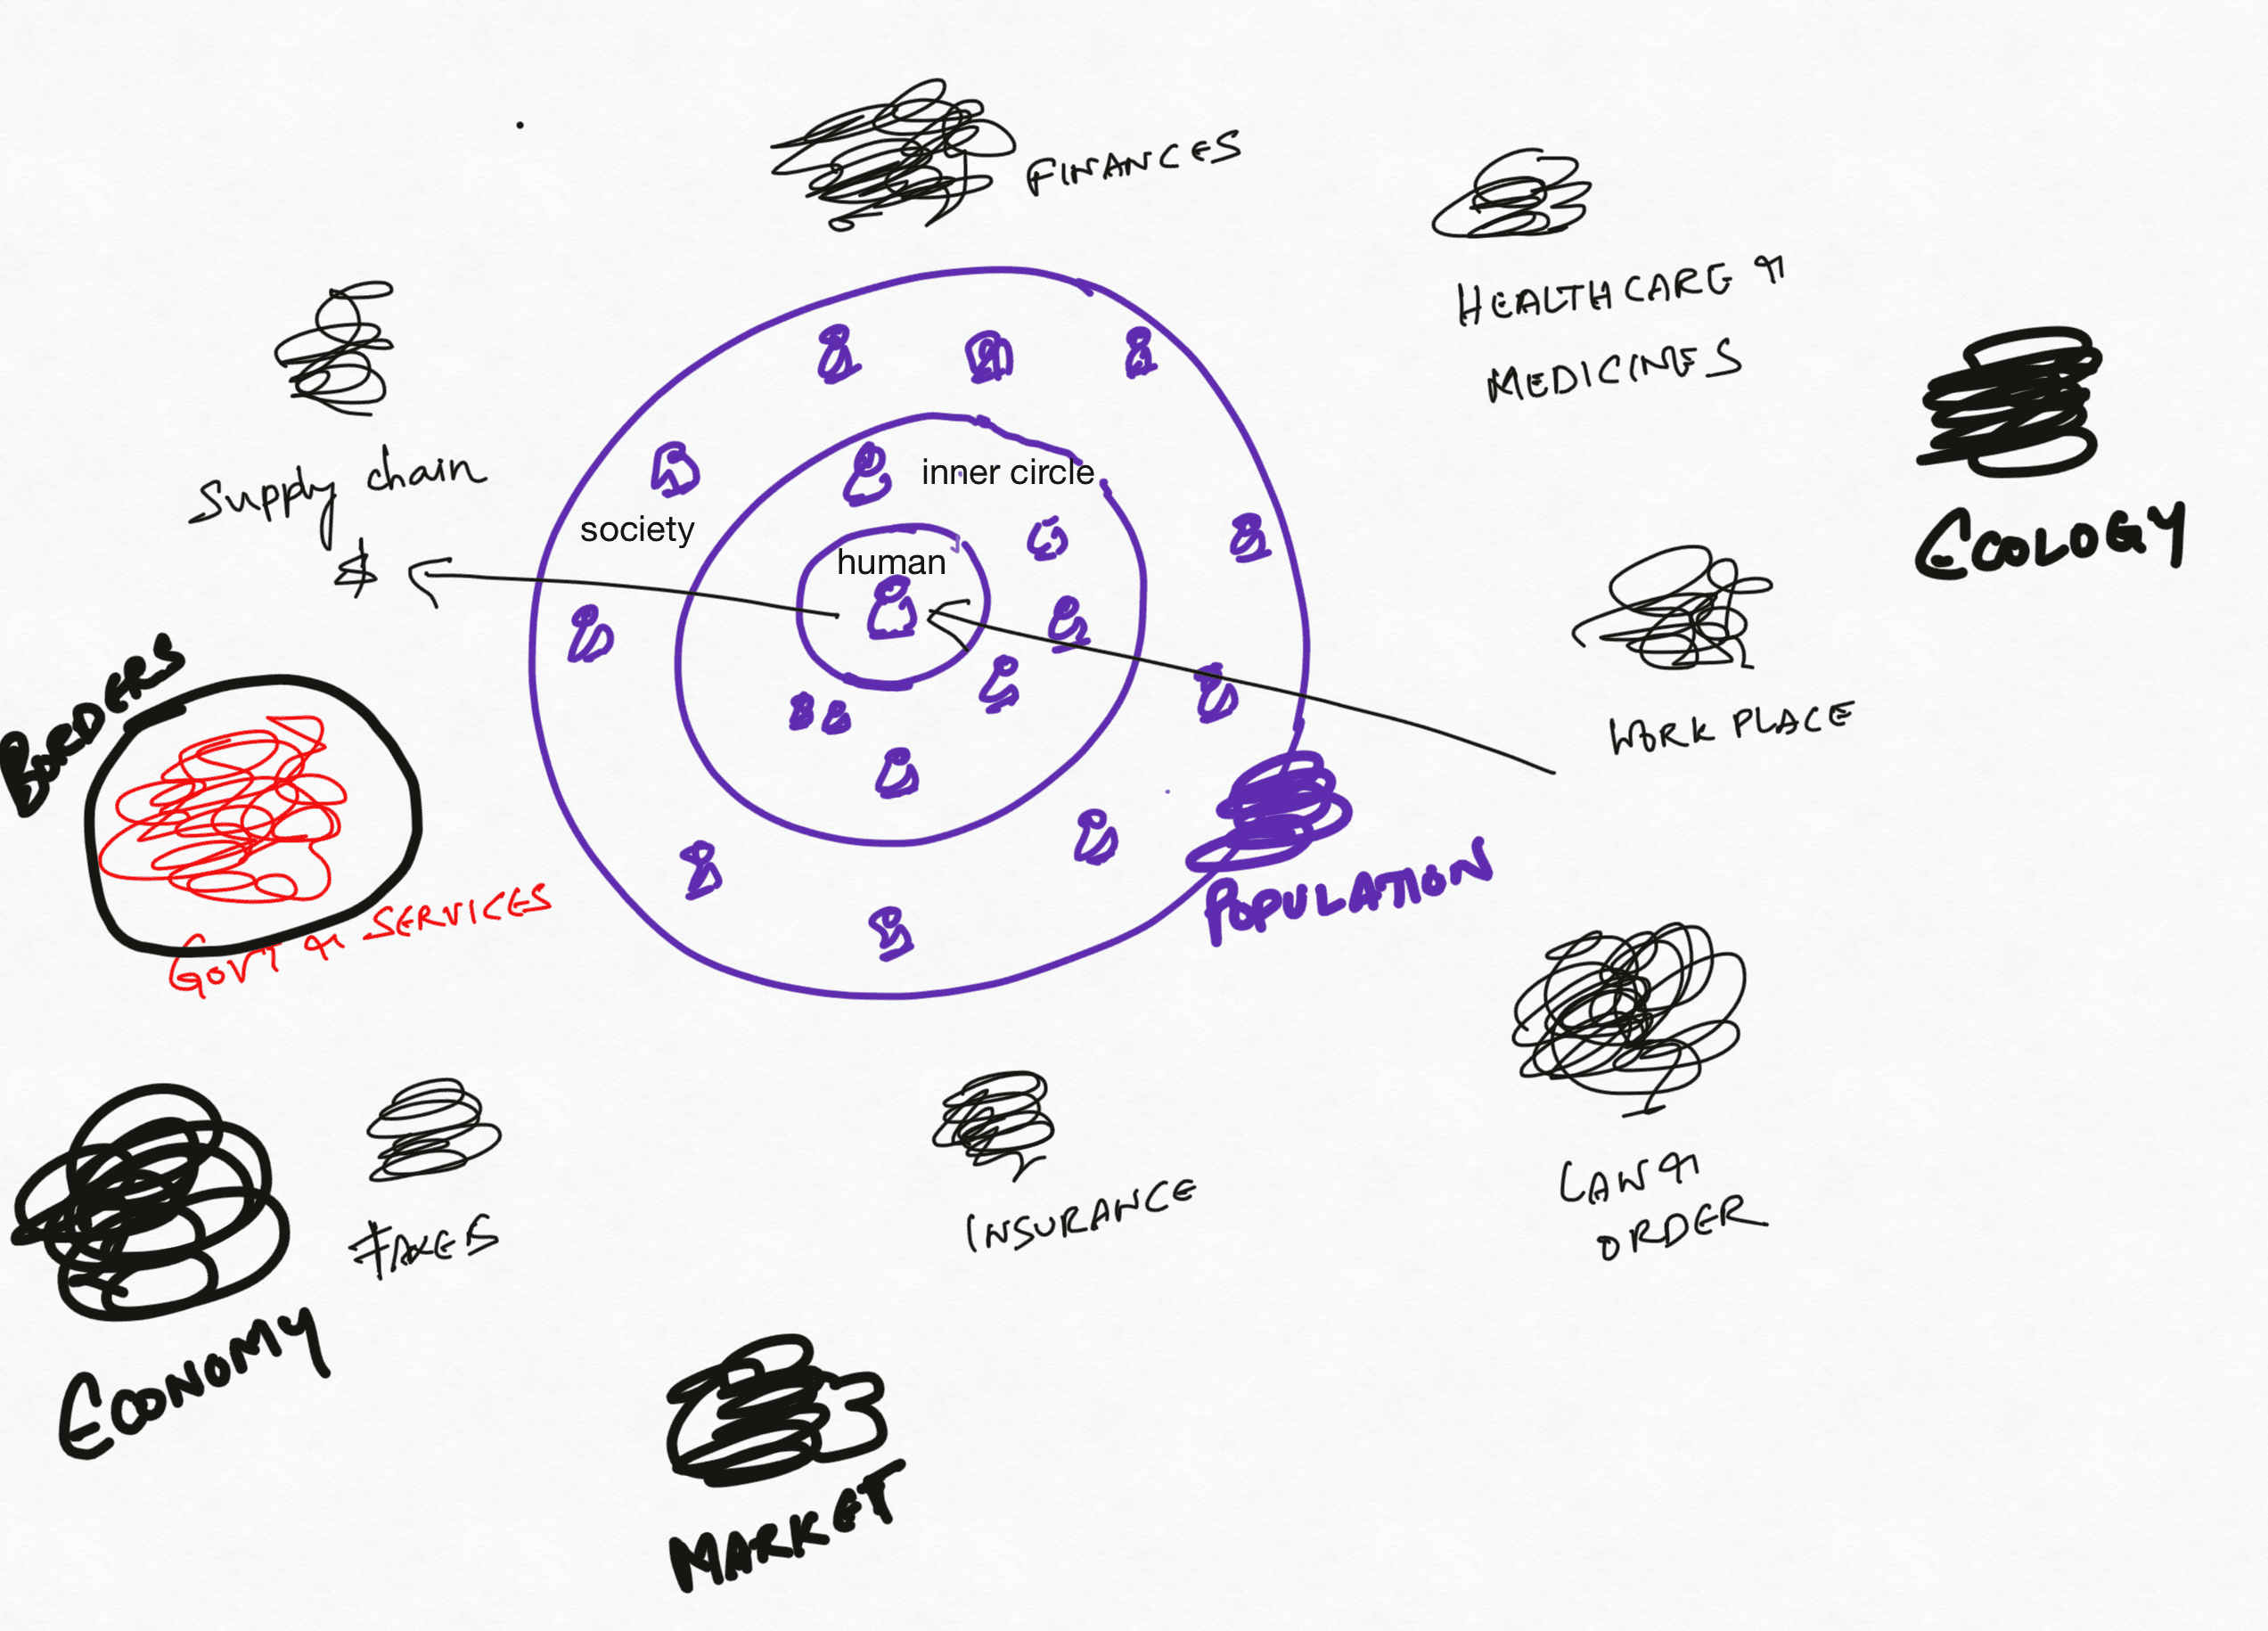 FINANCES
HEALTHCARE &
MEDICINES
ECOLOGY
supply chain
$
inner circle
society
human
WORK PLACE
BORDERS
POPULATION
GOVT & SERVICES
TAXES
INSURANCE
LAW &
ORDER
ECONOMY
MARKET